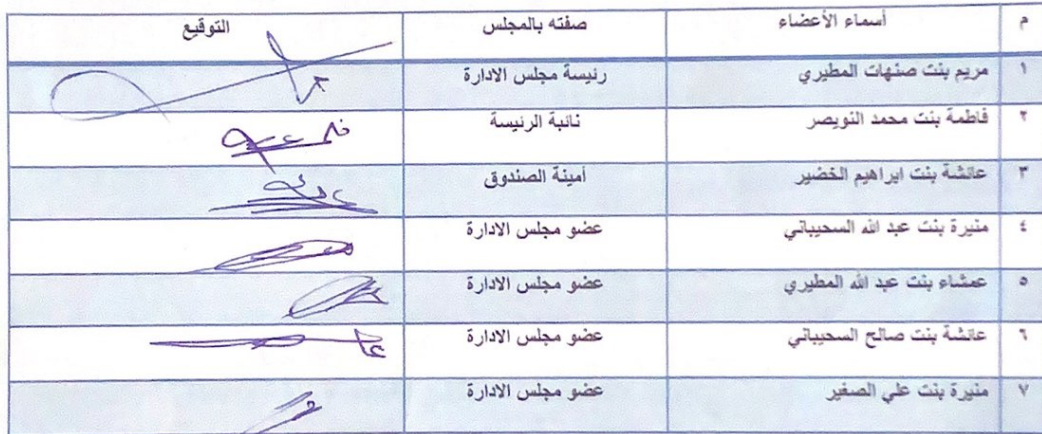 م أسماء الأعضاء صفته بالمجلس التوقيع
١ مريم بنت صنهات المطيري رئيسة مجلس الادارة
٢ فاطمة بنت محمد النويصر نائبة الرئيسة
٣ عائشة بنت ابراهيم الخضير أمينة الصندوق
٤ منيرة بنت عبد الله السحيباني عضو مجلس الادارة
٥ عمشاء بنت عبد الله المطيري عضو مجلس الادارة
٦ عائشة بنت صالح السحيباني عضو مجلس الادارة
٧ منيرة بنت علي الصغير عضو مجلس الادارة